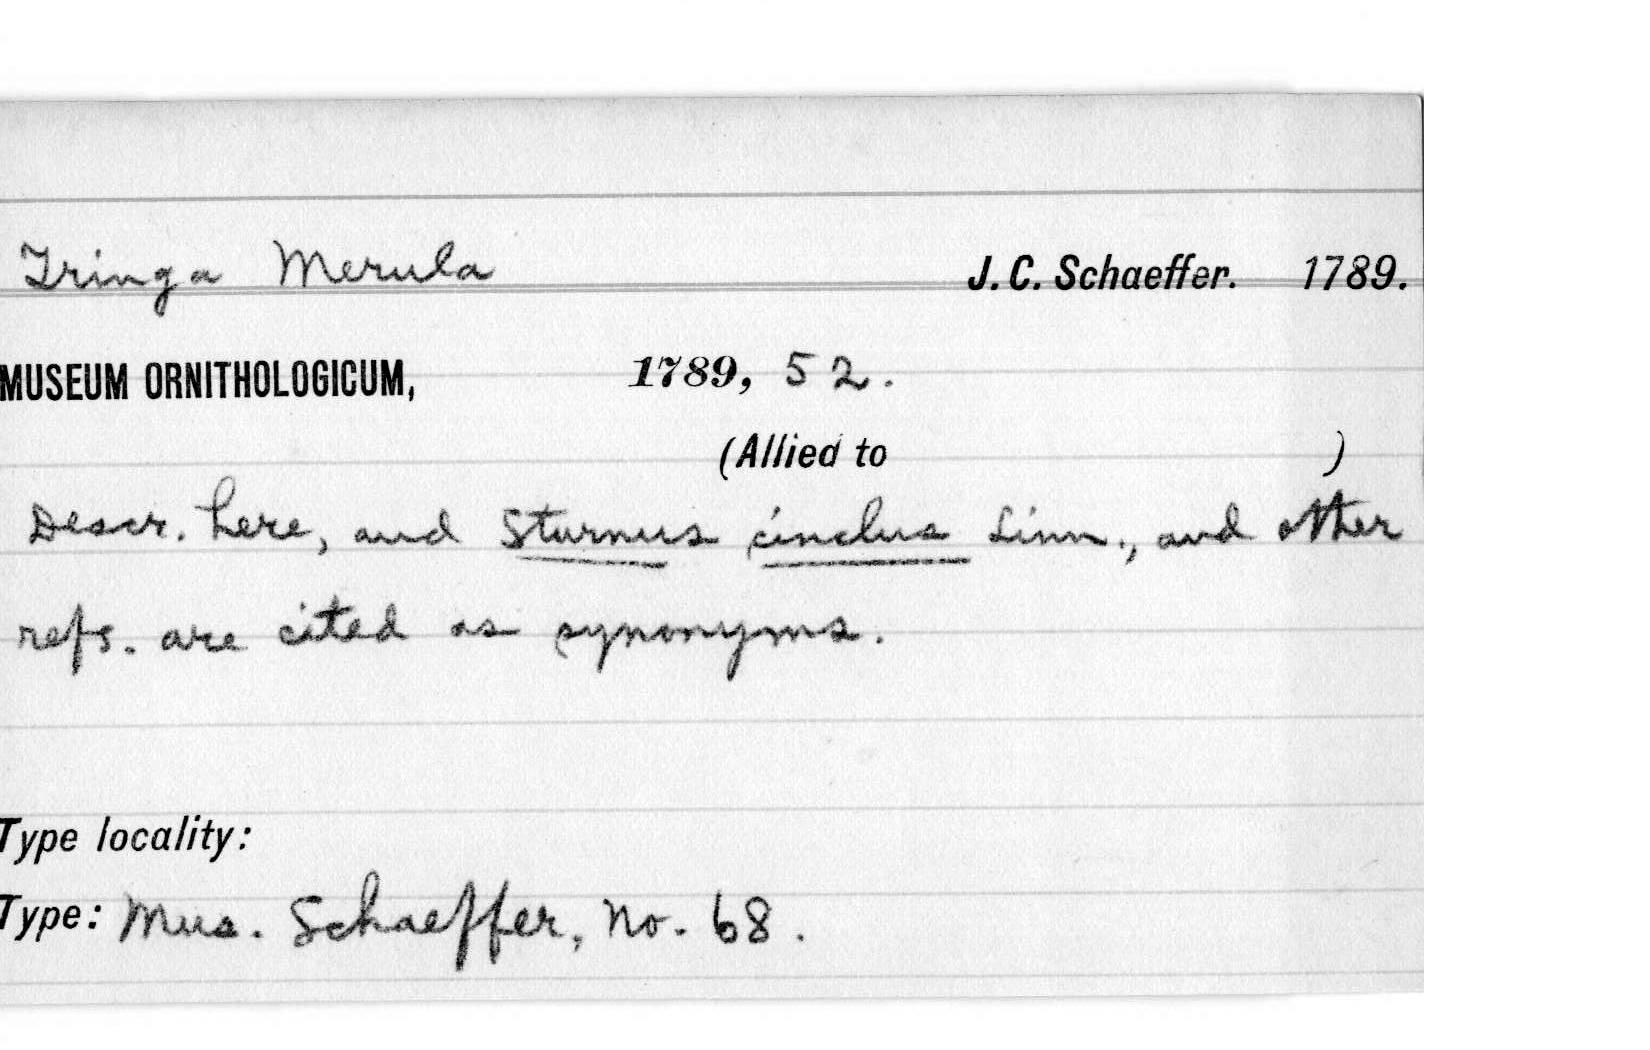 Tringa Merula J. C. Schaeffer. 1789.
MUSEUM ORNITHOLOGICUM, 1789, 52.
(Allied to )
Descr. here, and Sturnus cinclus Linn., and other
refs. are cited as synonyms.
Type locality:
Type: Mus. Schaeffer, No. 68.